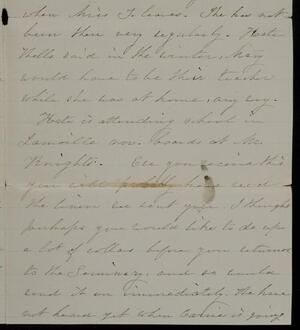 when Miss T. leaves. She has not
been there very regularly. Hester
Wells said in the winter, Mary
would have to be their teacher
while she was at home, any way.
Hester is attending school in
now. boards at Mr.
Knights. Ere you receive this
you will probably have rec'd
the linen we sent you. I thought
perhaps you would like to do up
a lot of collars before you returned
to the Seminary. and so would
send it on immediately. We have
not heard yet when is going